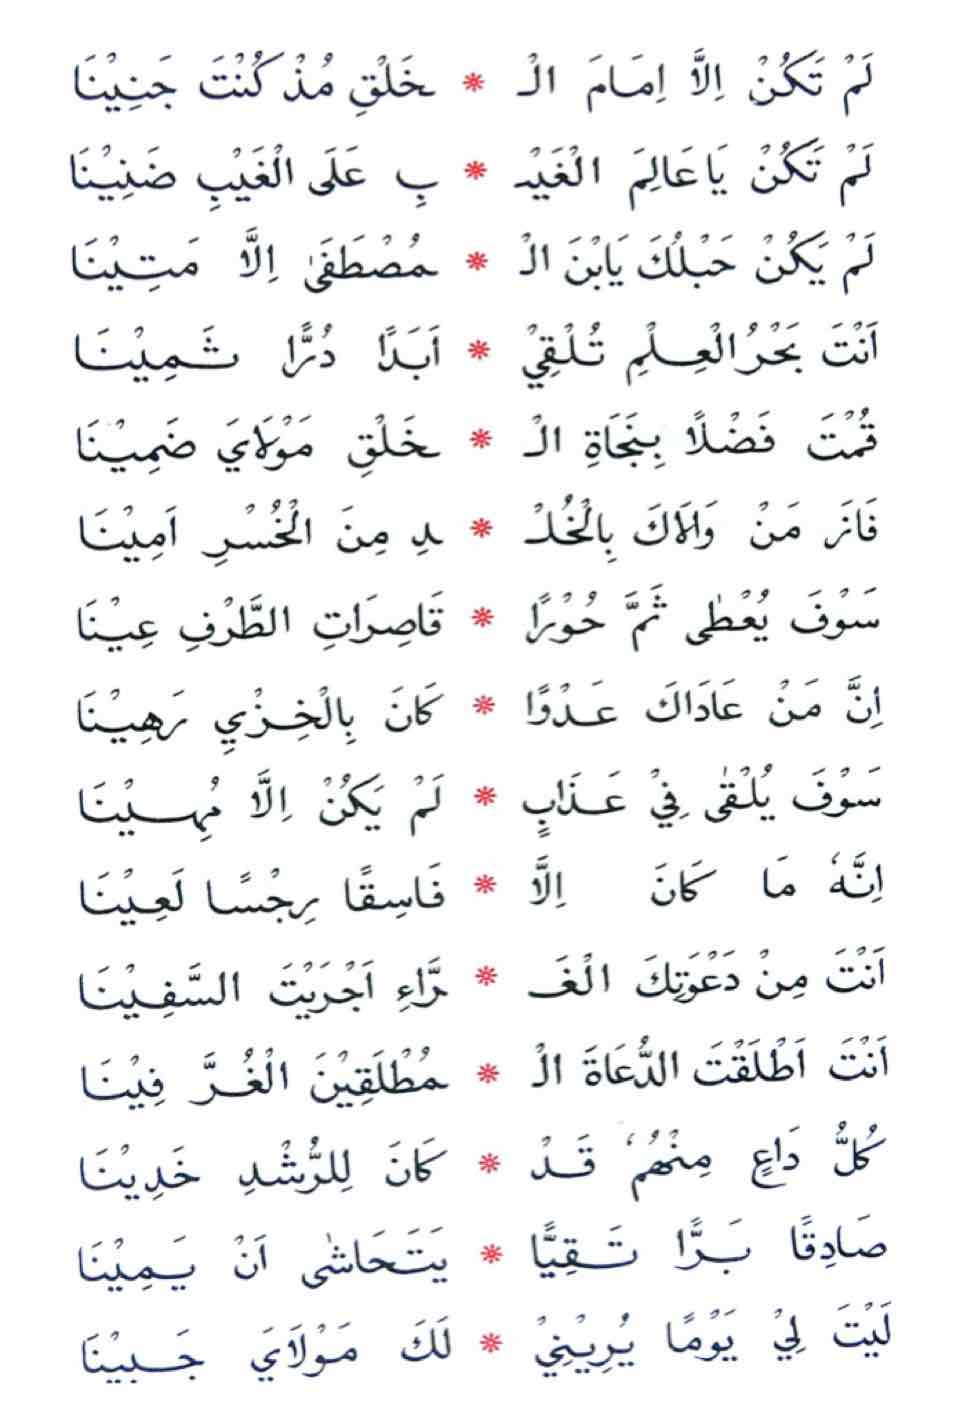 لَمْ تَكُنْ اِلَّا اِمَامَ الْـ * ـخَلْقِ مُذْ كُنْتَ جَنِيْنَا
لَمْ تَكُنْ يَا عَالِمَ الْغَيْـ * ـبِ عَلَى الْغَيْبِ ضَنِيْنَا
لَمْ يَكُنْ حَبْلُكَ يَابْنَ الْـ * ـمُصْطَفَىٰ اِلَّا مَتِيْنَا
اَنْتَ بَحْرُ الْعِلْمِ تُلْقِيْ * اَبَدًا دُرًّا ثَمِيْنَا
قُمْتَ فَضْلًا بِنَجَاةِ الْـ * ـخَلْقِ مَوْلَايَ ضَمِيْنَا
فَازَ مَنْ وَالَاكَ بِالْخُلْـ * ـدِ مِنَ الْخُسْرِ اَمِيْنَا
سَوْفَ يُعْطٰى ثَمَّ حُوْرًا * قَاصِرَاتِ الطَّرْفِ عِيْنَا
اِنَّ مَنْ عَادَاكَ عَدْوًا * كَانَ بِالْخِزْيِ رَهِيْنَا
سَوْفَ يُلْقٰى فِيْ عَذَابٍ * لَمْ يَكُنْ اِلَّا مُهِيْنَا
اِنَّهٗ مَا كَانَ اِلَّا * فَاسِقًا رِجْسًا لَعِيْنَا
اَنْتَ مِنْ دَعْوَتِكَ الْغَـ * ـرَّاءِ اَجْرَيْتَ السَّفِيْنَا
اَنْتَ اَطْلَقْتَ الدُّعَاةَ الْـ * ـمُطْلَقِيْنَ الْغُرَّ فِيْنَا
كُلُّ دَاعٍ مِنْهُمُ قَدْ * كَانَ لِلرُّشْدِ خَدِيْنَا
صَادِقًا بَرًّا تَقِيًّا * يَتَحَاشٰى اَنْ يَمِيْنَا
لَيْتَ لِيْ يَوْمًا يُرِيْنِيْ * لَكَ مَوْلَايَ جَبِيْنَا